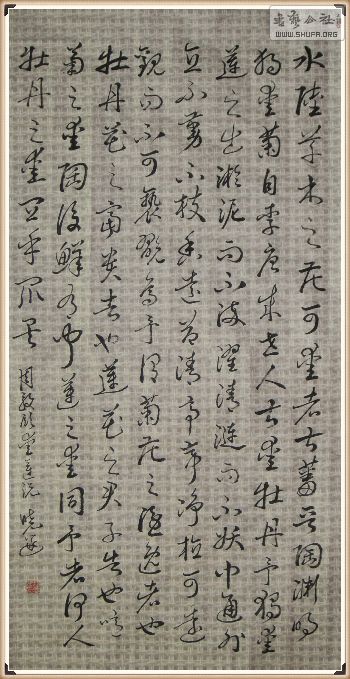 水陸草木之花可愛者甚蕃晉陶淵明
獨愛菊自李唐來世人甚愛牡丹予獨愛
蓮之出淤泥而不染濯清漣而不妖中通外
直不蔓不枝香遠益清亭亭淨植可遠
觀而不可褻翫焉予謂菊花之隱逸者也
牡丹花之富貴者也蓮花之君子者也噫
菊之愛陶後鮮有聞蓮之愛同予者何人
牡丹之愛宜乎眾矣
周敦頤愛蓮說
WWW.SHUFA.ORG